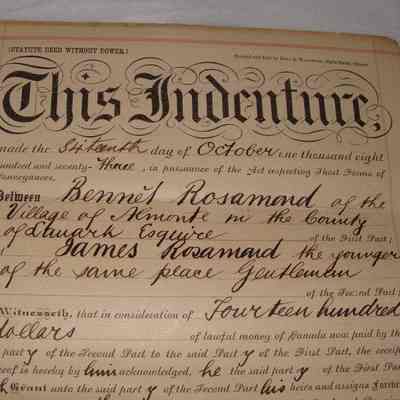 (STATUTE DEED WITHOUT DOWER.)
This Indenture,
made the Sixteenth day of October one thousand eight
hundred and seventy-three, in pursuance of the Act respecting Short Forms of
Conveyances,
Between Bennet Rosamond of the
Village of Almonte in the County
of Lanark Esquire of the First Part;
James Rosamond the younger
of the same place Gentleman
of the Second Part;
Witnesseth, that in consideration of Fourteen hundred
dollars of lawful money of Canada now paid by the
party of the Second Part to the said party of the First Part, the receipt
hereof is hereby by him acknowledged, he the said party of the First
Grant unto the said party of the Second Part his heirs and assigns